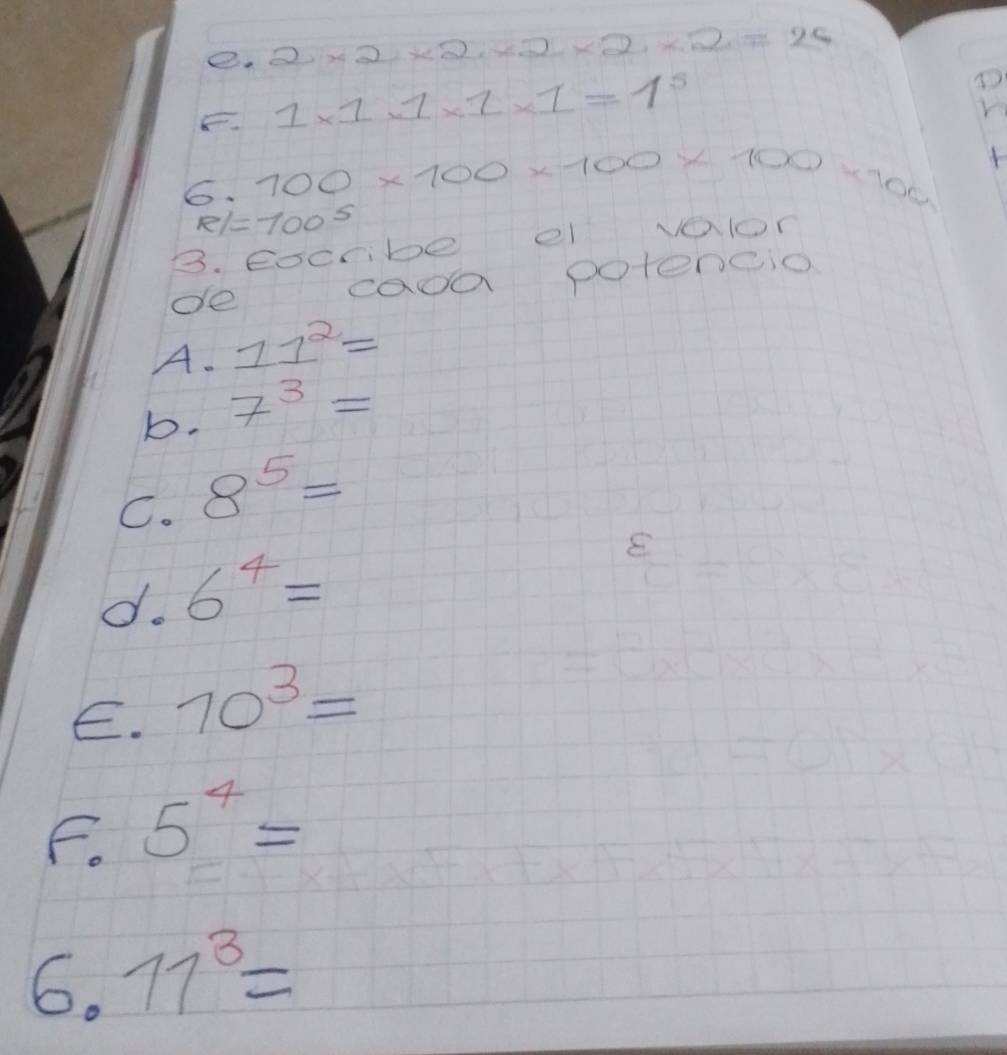 e. 2 × 2 × 2 × 2 × 2 × 2 = 2⁶
F. 1 × 1 × 1 × 1 × 1 = 1⁵
G. 100 × 100 × 100 × 100 × 100
R/= 100⁵
3. Escribe el valor
de cada potencia
A. 11² =
b. 7³ =
C. 8⁵ =
d. 6⁴ =
E. 10³ =
F. 5⁴ =
G. 11³ =